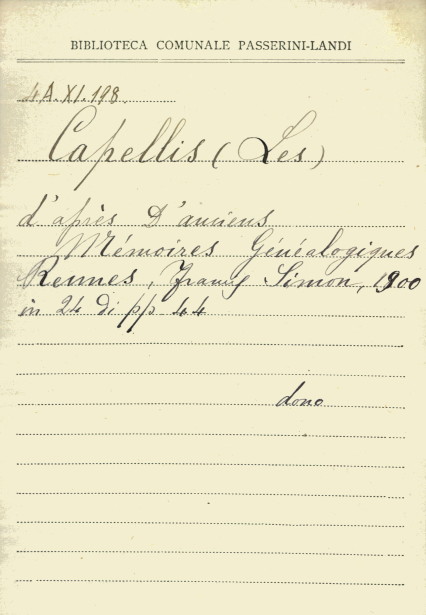 BIBLIOTECA COMUNALE PASSERINI-LANDI
4A.XI.198
Capellis (Les)
d'après D'anciens
Mémoires Généalogiques
Rennes, Francs Simon, 1900
in 24 di pp 44
dono